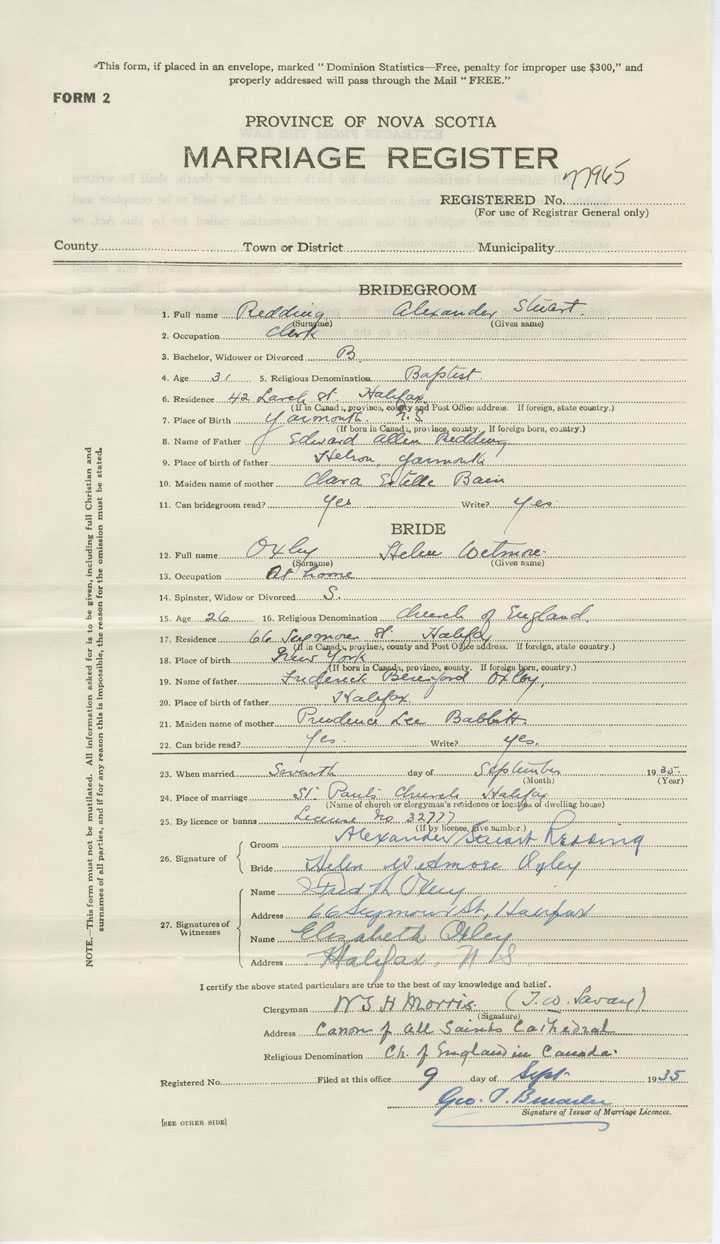 *This form, if placed in an envelope, marked "Dominion Statistics—Free, penalty for improper use $300," and
properly addressed will pass through the Mail "FREE."
FORM 2
PROVINCE OF NOVA SCOTIA
MARRIAGE REGISTER
77965
REGISTERED No.
(For use of Registrar General only)
County Town or District Municipality
BRIDEGROOM
1. Full name Redding Alexander Stuart.
(Surname) (Given name)
2. Occupation Clerk
3. Bachelor, Widower or Divorced B
4. Age 31 5. Religious Denomination Baptist.
6. Residence 42 Larch St. Halifax
(If in Canada, province, county and Post Office address. If foreign, state country.)
7. Place of Birth Yarmouth. N.S
(If born in Canada, province, county. If foreign born, country.)
8. Name of Father Edward Allen Redding
9. Place of birth of father Hebron, Yarmouth
10. Maiden name of mother Clara Estelle Bain
11. Can bridegroom read? Yes Write? Yes
BRIDE
12. Full name Oxley Helen Wetmore
(Surname) (Given name)
13. Occupation At home
14. Spinster, Widow or Divorced S.
15. Age 26 16. Religious Denomination Church of England.
17. Residence 66 Seymour St. Halifax
(If in Canada, province, county and Post Office address. If foreign, state country.)
18. Place of birth New York
(If born in Canada, province, county. If foreign born, country.)
19. Name of father Frederick Beresford Oxley.
20. Place of birth of father Halifax.
21. Maiden name of mother Prudence Lee Babbitt.
22. Can bride read? Yes. Write? yes.
23. When married Seventh day of September 1935.
(Month) (Year)
24. Place of marriage St Pauls Church Halifax
(Name of church or clergyman's residence or location of dwelling house)
25. By licence or banns License No 32777
(If by licence, give number.)
26. Signature of Groom Alexander Stuart Redding
Bride Helen Wetmore Oxley
27. Signatures of Witnesses
Name Oxley
Address 66 Seymour St, Halifax
Name Elizabeth Oxley
Address Halifax, N S
I certify the above stated particulars are true to the best of my knowledge and belief.
Clergyman W S H Morris (T. W. Savary)
(Signature)
Address Canon of All Saints Cathedral
Religious Denomination Ch. of England in Canada.
Registered No. Filed at this office 9 day of Sept 1935
Geo.
Signature of Issuer of Marriage Licences.
[SEE OTHER SIDE]
NOTE.—This form must not be mutilated. All information asked for is to be given, including full Christian and
surnames of all parties, and if for any reason this is impossible, the reason for the omission must be stated.